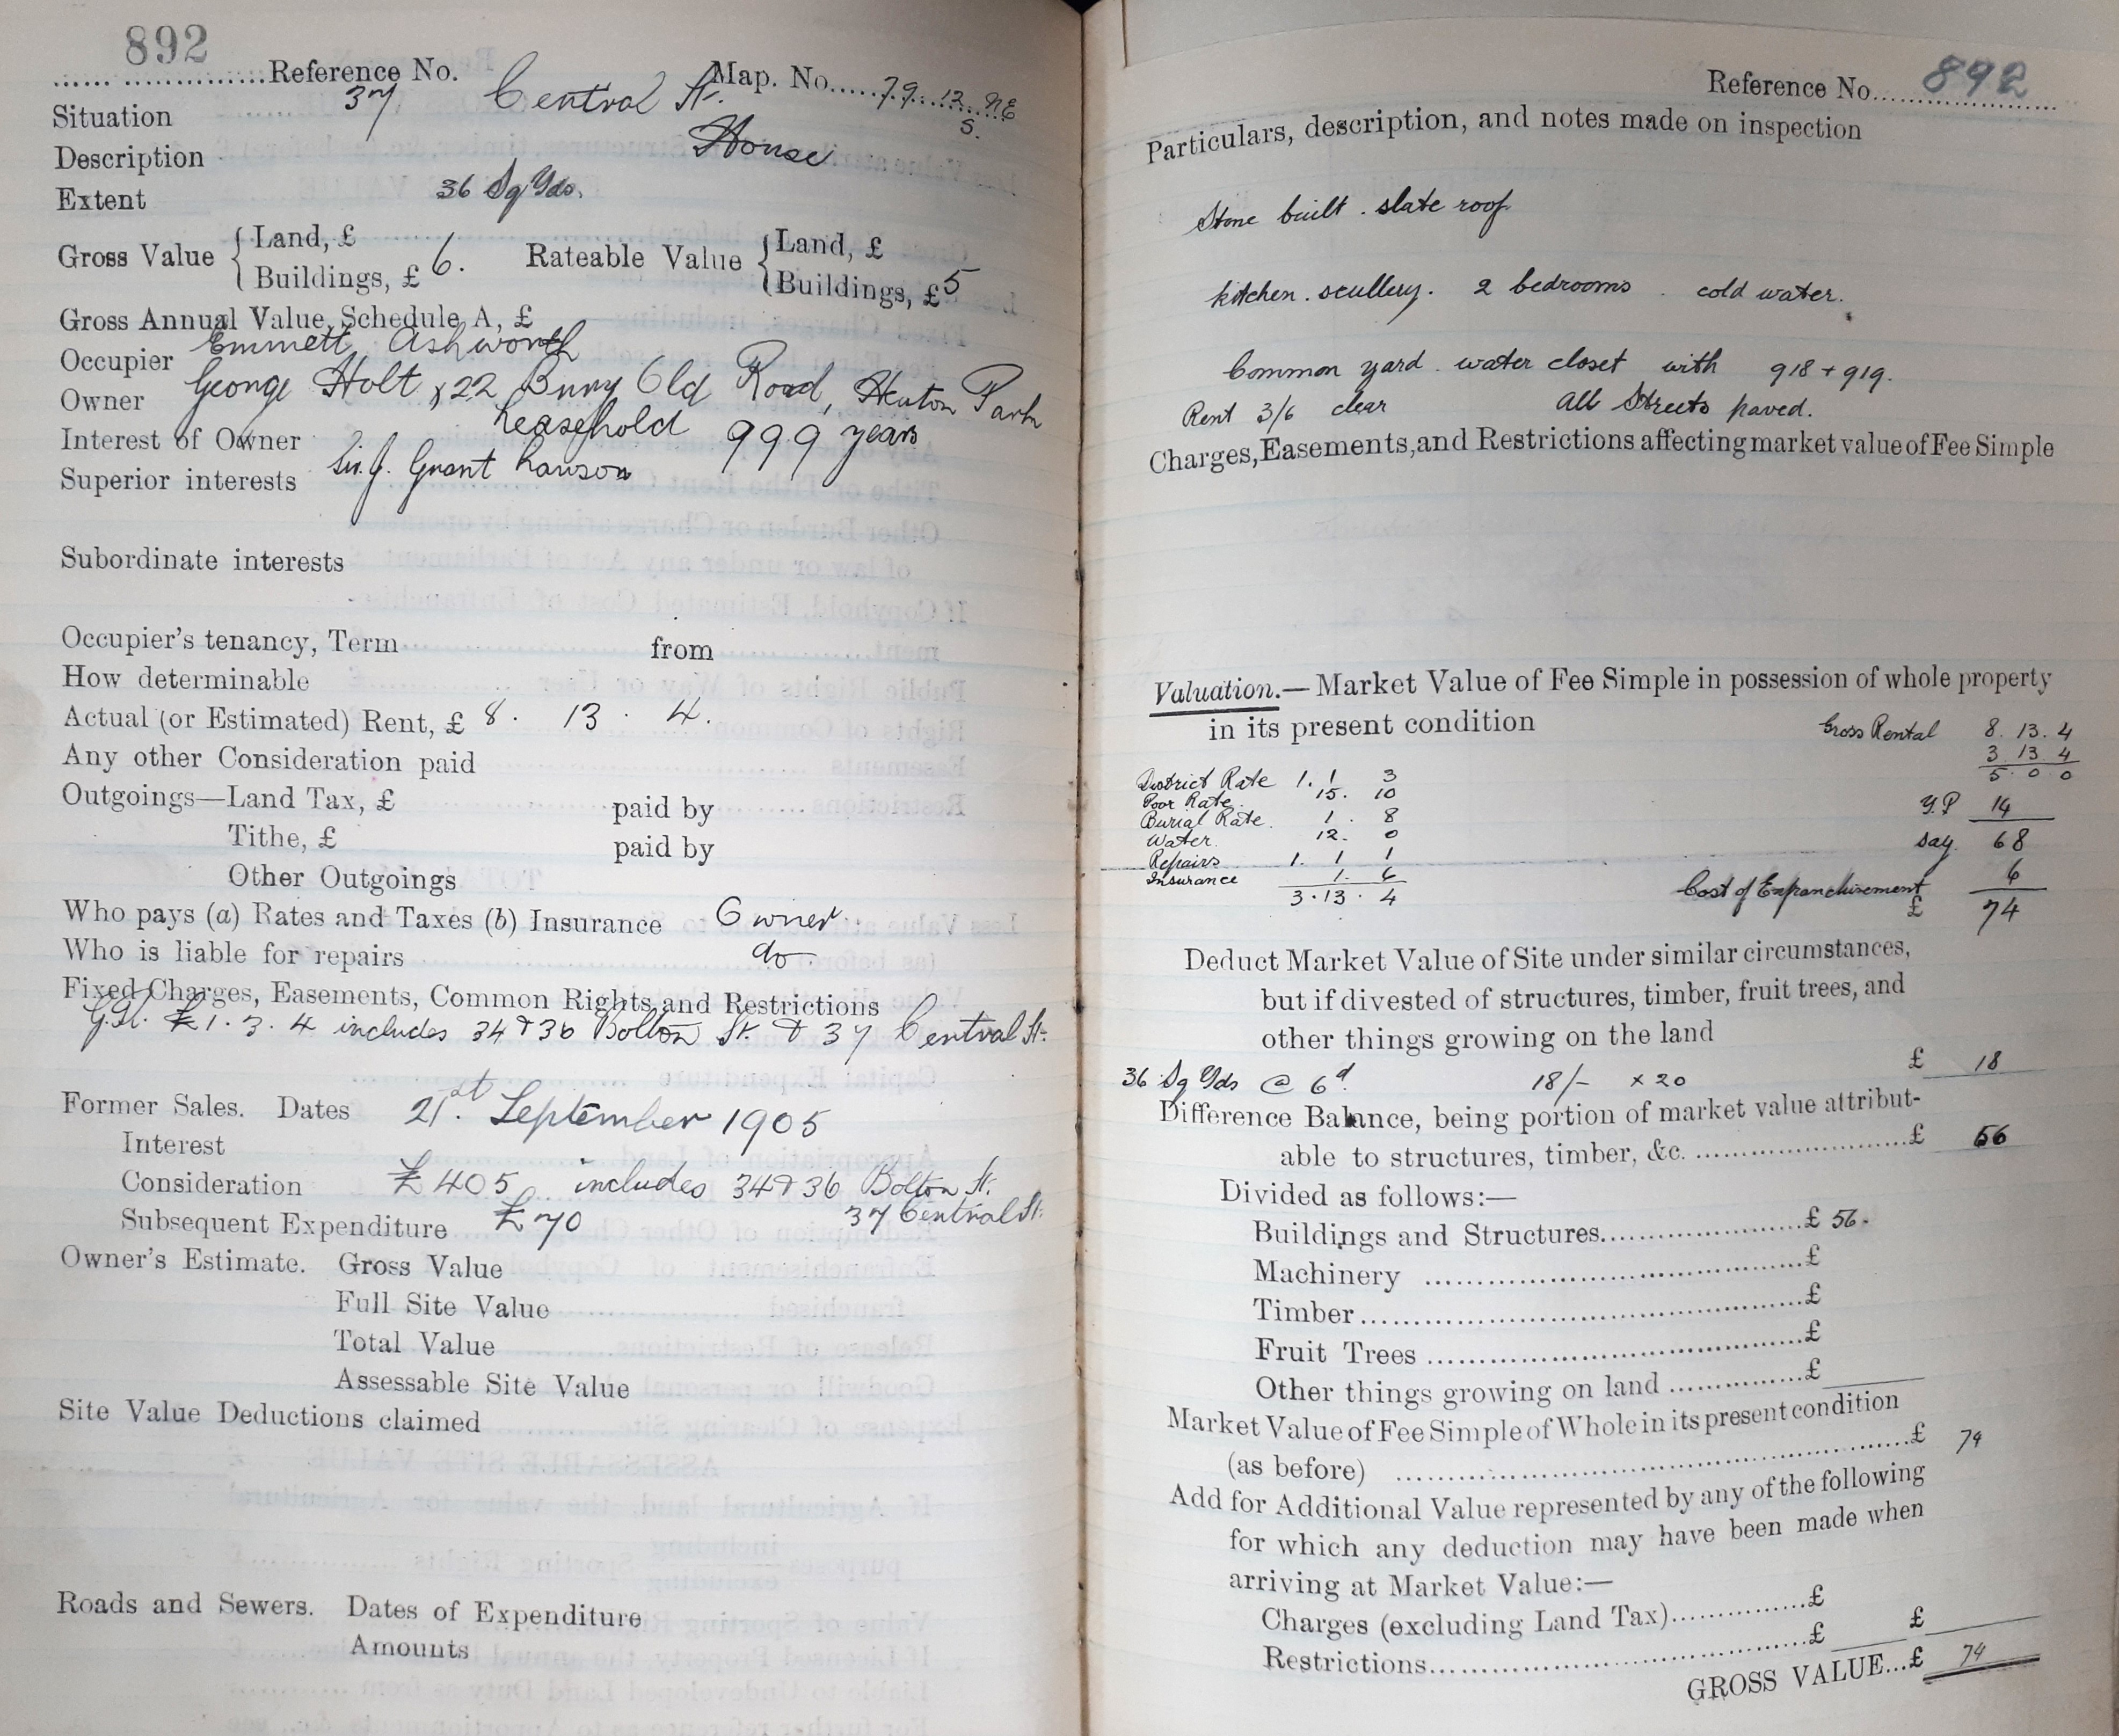 892
Reference No. Map. No. 79.13. NE
S.
Situation 37 Central St.
Description House
Extent 36 Sq Yds.
Gross Value { Land, £ Rateable Value { Land, £
Buildings, £ 6. Buildings, £ 5
Gross Annual Value, Schedule A, £
Occupier Emmett Ashworth
Owner George Holt 22 Bury Old Road, Heaton Park
Interest of Owner Leasehold 999 years
Superior interests Sir J. Grant Lawson
Subordinate interests
Occupier's tenancy, Term from
How determinable
Actual (or Estimated) Rent, £ 8. 13. 4.
Any other Consideration paid
Outgoings—Land Tax, £ paid by
Tithe, £ paid by
Other Outgoings
Who pays (a) Rates and Taxes (b) Insurance Owner
Who is liable for repairs do
Fixed Charges, Easements, Common Rights and Restrictions
G.R. £1. 3. 4 includes 34 & 36 Bolton St. & 37 Central St.
Former Sales. Dates 21st. September 1905
Interest
Consideration £405 includes 34 & 36 Bolton St.
37 Central St.
Subsequent Expenditure £70
Owner's Estimate. Gross Value
Full Site Value
Total Value
Assessable Site Value
Site Value Deductions claimed
Roads and Sewers. Dates of Expenditure
Amounts
Reference No. 892
Particulars, description, and notes made on inspection
Stone built. slate roof
kitchen. scullery. 2 bedrooms. cold water.
Common yard. water closet with 918 + 919.
Rent 3/6 clear All Streets paved.
Charges, Easements, and Restrictions affecting market value of Fee Simple
Valuation.—Market Value of Fee Simple in possession of whole property
in its present condition
Gross Rental 8. 13. 4
3 13 4
5. 0 0
Y.P 14
say 68
6
Cost of Enfranchisement
£ 74
District Rate 1. 1 3
Poor Rate. 15. 10
Burial Rate. 1. 8
Water. 12. 0
Repairs 1. 1 1
Insurance 1. 6
3. 13. 4
Deduct Market Value of Site under similar circumstances,
but if divested of structures, timber, fruit trees, and
other things growing on the land
36 Sq Yds @ 6d. 18/- x 20 £ 18
Difference Balance, being portion of market value attribut-
able to structures, timber, &c. £ 56
Divided as follows:—
Buildings and Structures £ 56.
Machinery £
Timber £
Fruit Trees £
Other things growing on land £
Market Value of Fee Simple of Whole in its present condition
(as before) £ 74
Add for Additional Value represented by any of the following
for which any deduction may have been made when
arriving at Market Value:—
Charges (excluding Land Tax) £
Restrictions £ £
GROSS VALUE...£ 74